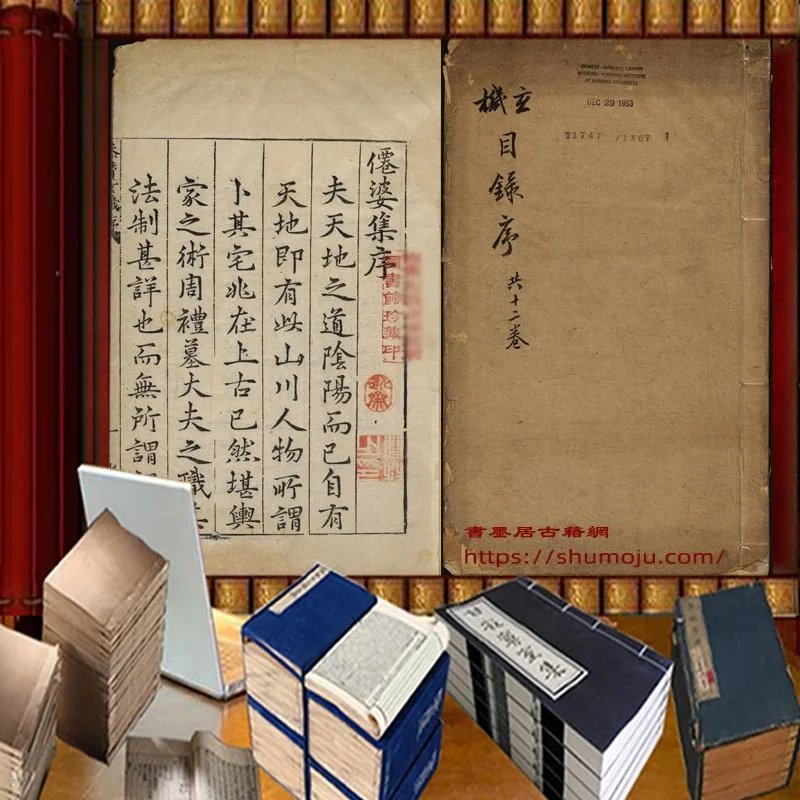 僊婆集序
夫天地之道陰陽而已自有
天地即有此山川人物所謂
卜其宅兆在上古已然堪輿
家之術周禮墓大夫之職其
法制甚詳也而無所謂
書館珍藏印
CHINESE-JAPANESE LIBRARY
HARVARD-YENCHING INSTITUTE
AT HARVARD UNIVERSITY
DEC 29 1953
T1747 /1367 1
玄機
目錄序
共十二卷
書墨居古籍網
https://shumoju.com/